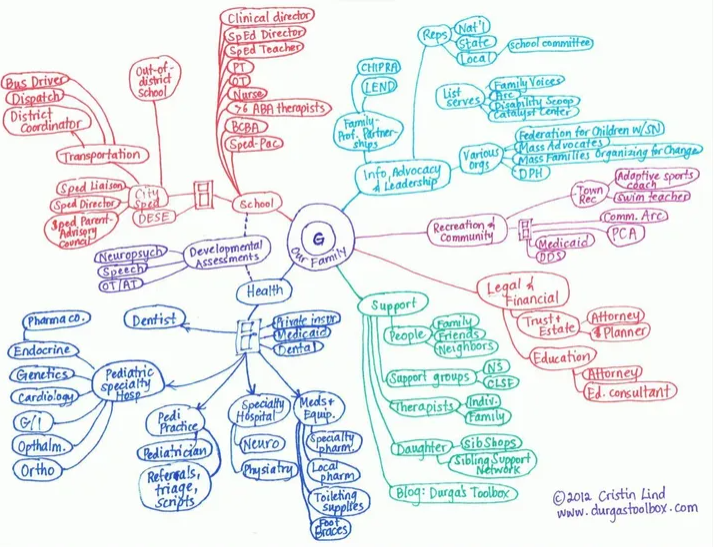 Clinical director
SpEd Director
Sped Teacher
PT
OT
Nurse
>6 ABA therapists
BCBA
Sped-Pac
School
Out-of-
district
school
Bus Driver
Dispatch
District
Coordinator
Transportation
City
Sped
DESE
Sped Liaison
Sped Director
Sped Parent
Advisory
Council
Developmental
Assessments
Neuropsych
Speech
OT/AT
G
Our Family
Info, Advocacy
& Leadership
Reps
Nat'l
State
Local
school committee
CHIPRA
LEND
Family-
Prof. Partner-
ships
List
serves
Family Voices
Arc
Disability Scoop
Catalyst Center
Various
orgs
Federation for Children w/SN
Mass Advocates
Mass Families Organizing for Change
DPH
Recreation &
Community
Town
Rec
Adaptive sports
coach
Swim teacher
Comm. Arc
PCA
Medicaid
DDS
Legal &
Financial
Trust +
Estate
Attorney
$ Planner
Education
Attorney
Ed. consultant
Support
People
Family
Friends
Neighbors
Support groups
NS
CLSF
Therapists
Indiv.
Family
Daughter
SibShops
Sibling Support
Network
Blog: Durga's Toolbox
Health
Private insur
Medicaid
Dental
Dentist
Pediatric
specialty
Hosp
Pharma co.
Endocrine
Genetics
Cardiology
G/I
Opthalm.
Ortho
Pedi
Practice
Pediatrician
Referrals,
triage,
scripts
Specialty
Hospital
Neuro
Physiatry
Meds+
Equip.
Specialty
pharm.
Local
pharm
Toileting
supplies
Foot
Braces
©2012 Cristin Lind
www.durgastoolbox.com